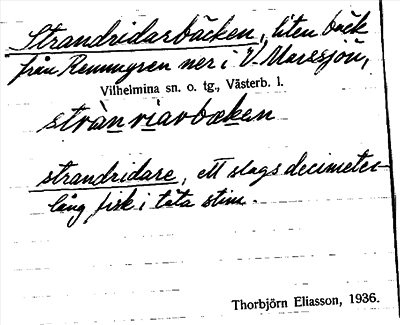 Strandridarbäcken, liten bäck
från Remmgren ner i V. Marssjön,
Vilhelmina sn. o. tg., Västerb. l.
stràn riarbæken
strandridare, ett slags decimeter-
lång fisk i täta stim.
Thorbjörn Eliasson, 1936.